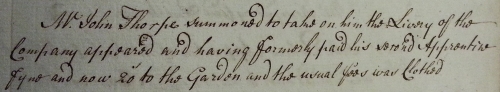 Mr. John Thorpe summoned to take on him the Livery of the
Company appeared and having formerly paid his second Apprentice
Fyne and now 20s to the Garden and the usual fees was Clothed